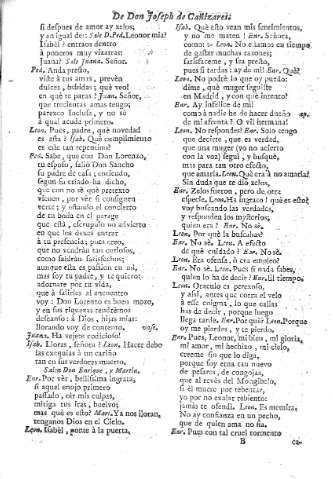 De Don Joseph de Cañizares.
si despues de amor ay zelos;
y an igual de: Sale D. Ped. Leonor mia?
Isabèl? entraos dentro
à poneros muy vizarras:
Juana? Sale Juana. Señor.
Ped. Anda presto,
viste à tus amas, prevèn
dulces, bebidas; què veo!
en què te paras? Juan. Señor,
que trecientas amas tengo;
parezco Inclusa, y no sè
à qual acuda primero.
Leon. Pues, padre, què novedad
es esta? Isab. Què cumplimiento
es este tan repentino?
Ped. Sabe, que con Don Lorenzo,
tu esposo, saliò Don Sancho
su padre de casa; entiendo,
segun su criado ha dicho,
que con no sè què pretexto
vienen, por vèr si consiguen
verte; y estando el concierto
de tu boda en el parage
que està, escrupulo no advierto
en que los dexes entrar
à tu presencia; pues creo,
que no vendràn tan curiosos,
como saldràn satisfechos;
aunque esta es passion en mi,
mas soy tu padre, y te quiero:
adornate por tu vida,
que à salirles al encuentro
voy: Don Lorenzo es buen mozo,
y en sus riquezas tendrèmos
descanso: à Dios, hijas mias:
llorando voy de contento. vase.
Juana. Ha vejete codicioso!
Isab. Lloras, Señora? Leon. Hacer debo
las exequias à un cariño
tan en sus verdores muerto.
Salen Don Enrique, y Martin.
Enr. Por vèr, bellissima ingrata,
si aquel enojo primero
passado, oìr mis culpas,
mitiga tus iras, buelvo;
mas què es esto? Mart. Ya nos lloran,
tenganos Dios en el Cielo.
Leon. Isabèl, ponte à la puerta,
Isab. Què esto vean mis sentimientos,
y no me maten! Enr. Señora,
como: Leon. No estamos en tiempo
de gastar muchas razones;
satisfaceme, y sea presto,
pues si tardas: ay de mi! Enr. Què?
Leon. No podrè lo que oy puedo:
dime, què muger seguiste
en Madrid, y con què intento?
Enr. Ay infelice de mi!
como à nadie he de hacer dueño ap.
de mi afrenta? O vil hermana!
Leon. No respondes? Enr. Solo tengo
que decirte, que es verdad,
que una muger (yo no acierto
con la voz) seguì, y busquè,
mas para tan otro efecto,
que amarla. Leon. Què era no amarla?
Sin duda que te diò zelos.
Enr. Zelos fueron, pero de otra
especie. Leon. Ha ingrato! què es esto?
voy buscando las verdades,
y responden los mysterios,
quien era? Enr. No sè.
Leon. Por què la buscabas?
Enr. No sè. Leon. A efecto
de què cuidado? Enr. No sè.
Leon. Era ofensa, ò era empleo?
Enr. No sè. Leon. Pues si nada sabes,
quien lo ha de decir? Enr. El tiempo.
Leon. Oraculo es perezoso,
y assi, antes que corra el velo
à esse enigma, lo que callas
has de decir, porque luego
llega tarde. Enr. Por què? Leon. Porque
oy me pierdes, y te pierdo.
Enr. Pues, Leonor, mi bien, mi gloria,
mi amor, mi hechizo, mi cielo,
creeme sin que lo diga,
porque soy esta tan nuevo
de pesares, de congojas,
que al revès del Mongibelo,
si èl muere por rebentar,
yo por no exalar rebiento:
jamàs te ofendì. Leon. Es mentira,
No ay confianza en un pecho,
de quien ama no fia.
Enr. Pues con tal cruel tormento
B
ca-